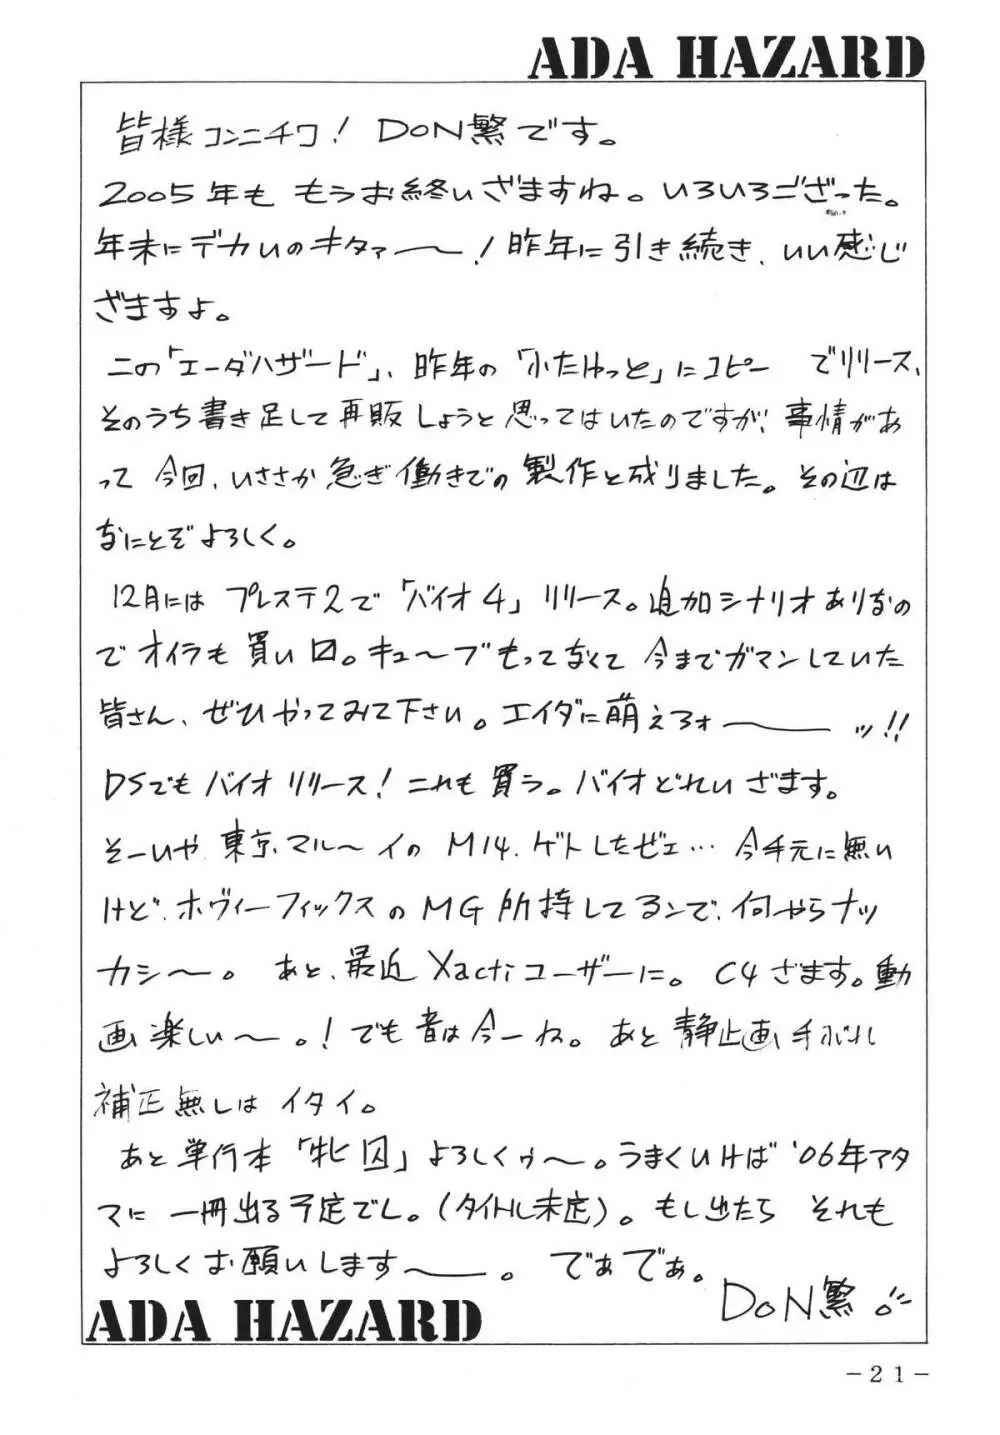 ADA HAZARD
皆様コンニチワ! DON繁です。
2005年も もうお終いざますね。いろいろござった。
年末にデカいのキタァ〜!昨年に引き続き、いい感じ
ざますよ。
この「エーダハザード」、昨年の「ふたけっと」にコピー でリリース、
そのうち書き足して再販しようと思ってはいたのですが、事情があ
って今回、いささか急ぎ働きでの製作と成りました。その辺は
なにとぞよろしく。
12月にはプレステ2で「バイオ4」リリース。追加シナリオありなの
でオイラも買い口。キュ〜ブもってなくて今までガマンしていた
皆さん、ぜひやってみて下さい。エイダに萌えろォ――ッ!!
DSでもバイオリリース!これも買う。バイオどれいざます。
そーいや、東京マル〜イのM14、ゲトしたぜェ…今手元に無い
けど、ホヴィーフィックスのMG所持してるンで、何やらナツ
カシ〜。 あと、最近Xactiユーザーに。C4ざます。動
画楽しい〜。!でも音は今一ね。あと静止画手ぶれ
補正無しはイタイ。
あと単行本「牝囚」よろしくゥ〜。うまくいけば'06年アタ
マに一冊出る予定でし。(タイトル未定)。もし出たら それも
よろしくお願いします〜。 でぁでぁ。
DON繁
ADA HAZARD
−21−